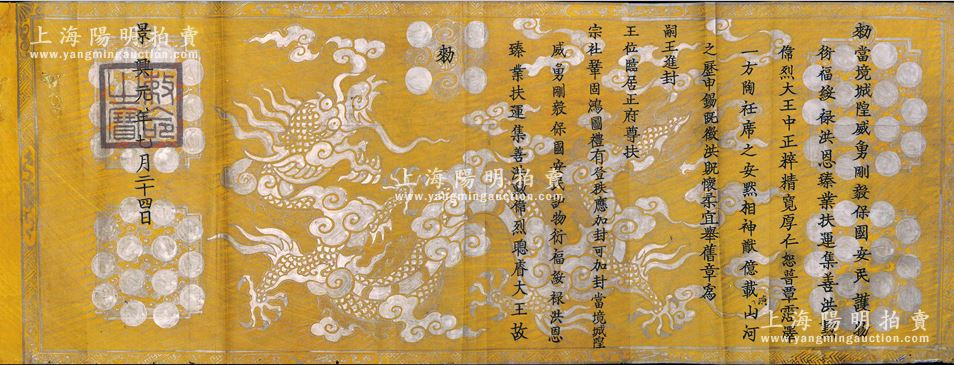 勑當境城隍威勇剛毅保國安民護物
衍福綏祿洪恩臻業扶運集善洪猷
偉烈大王中正粹精寬厚仁恕普覃霑澤
一方陶衽席之安黙相神猷億載山河
之歷申錫既徵洪貺懷柔宜舉舊章爲
嗣王進封
王位臨居正府尊扶
宗社鞏固鴻圖禮有登秩應加封可加封當境城隍
威勇剛毅保國安民護物衍福綏祿洪恩
臻業扶運集善洪猷偉烈聰睿大王故
勑
景興 年七月二十四日
敕命之寶
上海陽明拍賣
www.yangmingauction.com
上海陽明拍賣
www.yangmingauction.com
上海陽明拍賣
www.yangmingauction.com